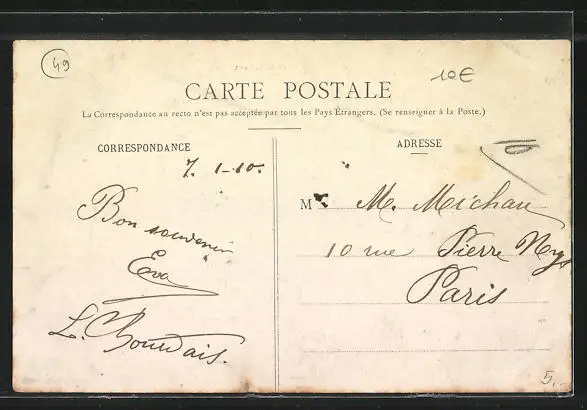 49
10€
CARTE POSTALE
La Correspondance au recto n'est pas acceptée par tous les Pays Étrangers. (Se renseigner à la Poste.)
CORRESPONDANCE
7. 1-10.
Bon souvenir
Eva
L. Bourdais.
ADRESSE
10
M M. Michau
10 rue Pierre Nys
Paris
5.-